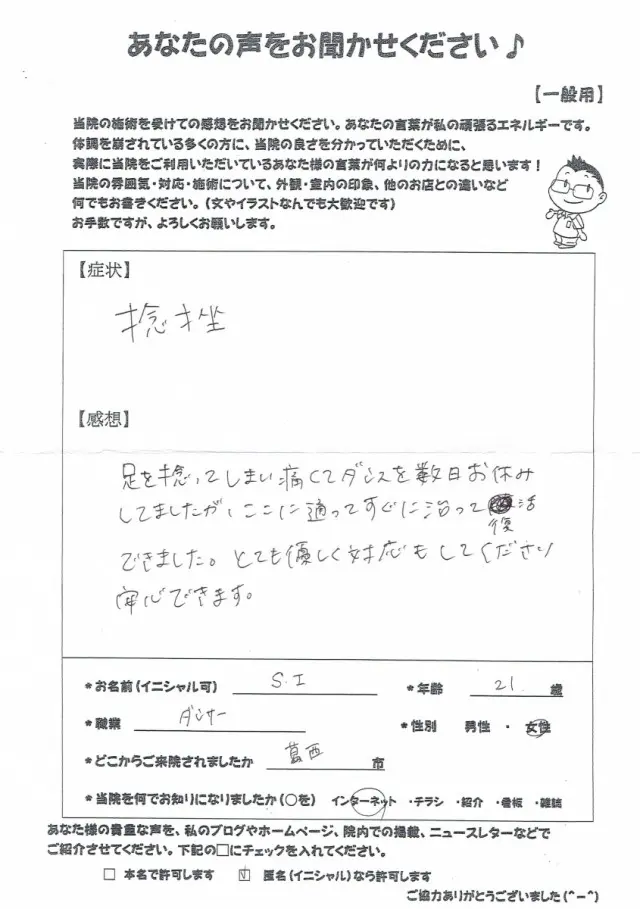 あなたの声をお聞かせください♪
【一般用】
当院の施術を受けての感想をお聞かせください。あなたの言葉が私の頑張るエネルギーです。
体調を崩されている多くの方に、当院の良さを分かっていただくために、
実際に当院をご利用いただいているあなた様の言葉が何よりの力になると思います!
当院の雰囲気・対応・施術について、外観・室内の印象、他のお店との違いなど
何でもお書きください。(文やイラストなんでも大歓迎です)
お手数ですが、よろしくお願いします。
【症状】
捻挫
【感想】
足を捻ってしまい痛くてダンスを数日お休み
してましたが、ここに通ってすぐに治って復活
できました。とても優しく対応もしてくださり
安心できます。
*お名前(イニシャル可) S.I *年齢 21 歳
*職業 ダンサー *性別 男性 ・ 女性
*どこからご来院されましたか 葛西 市
*当院を何でお知りになりましたか(○を) インターネット ・チラシ ・紹介 ・看板 ・雑誌
あなた様の貴重な声を、私のブログやホームページ、院内での掲載、ニュースレターなどで
ご紹介させてください。下記の□にチェックを入れてください。
□ 本名で許可します ☑ 匿名(イニシャル)なら許可します
ご協力ありがとうございました(^-^)